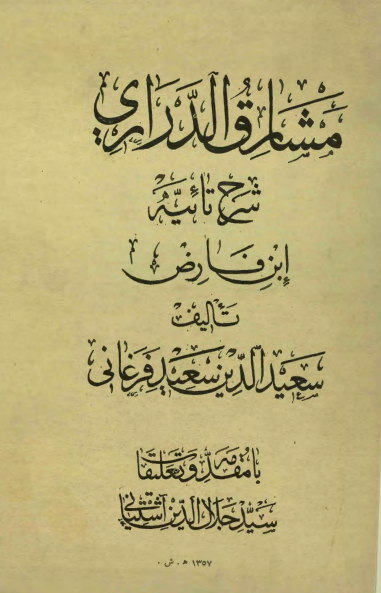 مَشارِقُ الدَّرَارِي
شَرح تائیّه
ابنِ فارِض
تألیف
سَعیدالدّین سَعید فَرغانی
با مقدّمه و تعلیقات
سیّد جلال‌الدّین آشتیانی
۱۳۵۷ ه . ش .